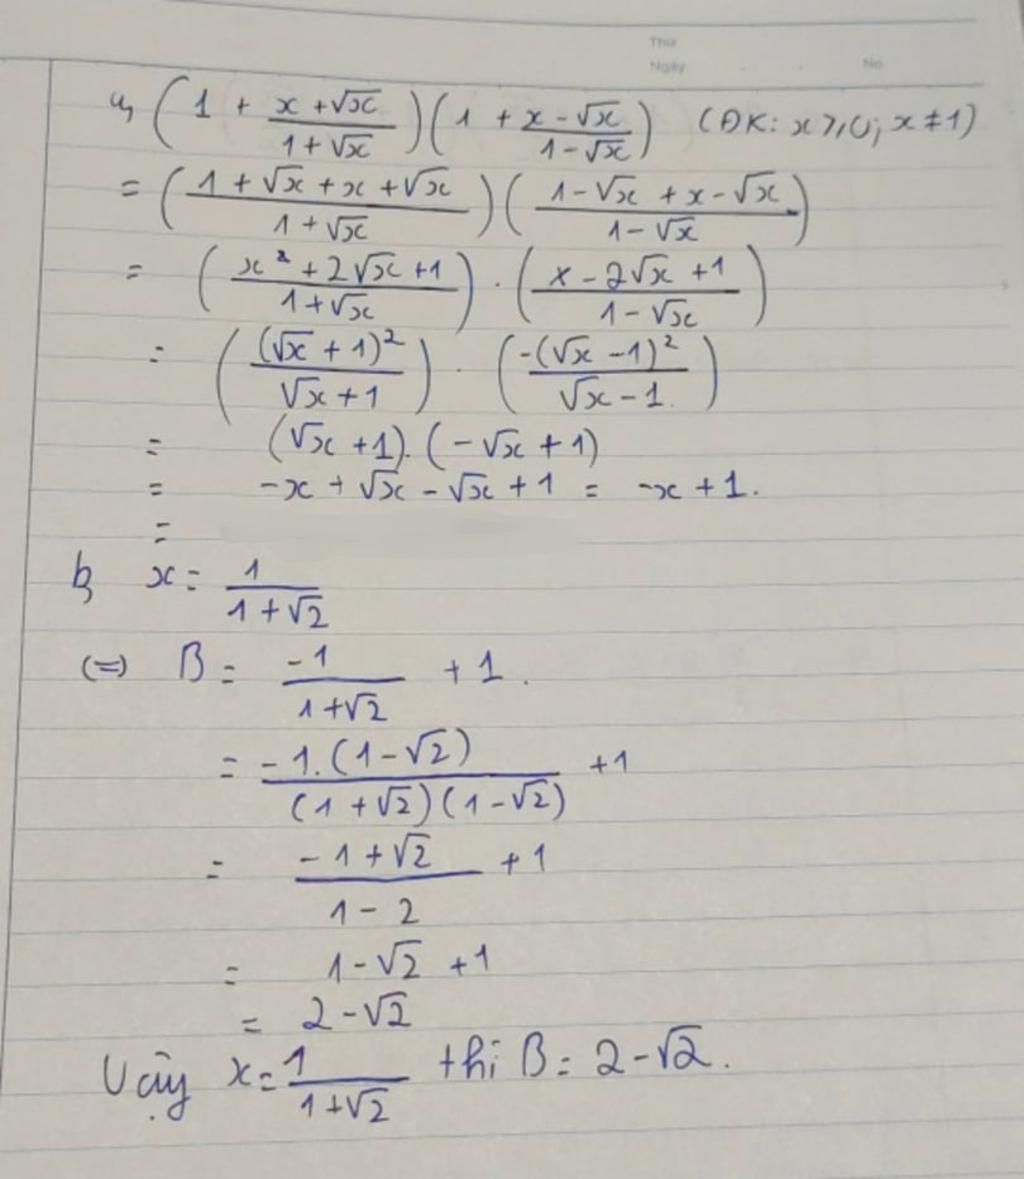 Thứ
Ngày No.
a, (1 + \frac{x + √x}{1 + √x})(1 + \frac{x - √x}{1 - √x}) (ĐK: x ≥ 0; x ≠ 1)
= (\frac{1 + √x + x + √x}{1 + √x})(\frac{1 - √x + x - √x}{1 - √x})
= (\frac{x² + 2√x + 1}{1 + √x}) . (\frac{x - 2√x + 1}{1 - √x})
= (\frac{(√x + 1)²}{√x + 1}) . (\frac{-(√x - 1)²}{√x - 1})
= (√x + 1) . (-√x + 1)
= -x + √x - √x + 1 = -x + 1.
=
b, x = \frac{1}{1 + √2}
(=) B = \frac{-1}{1 + √2} + 1.
= \frac{-1.(1 - √2)}{(1 + √2)(1 - √2)} + 1
= \frac{-1 + √2}{1 - 2} + 1
= 1 - √2 + 1
= 2 - √2
Vậy x = \frac{1}{1 + √2} thì B = 2 - √2.